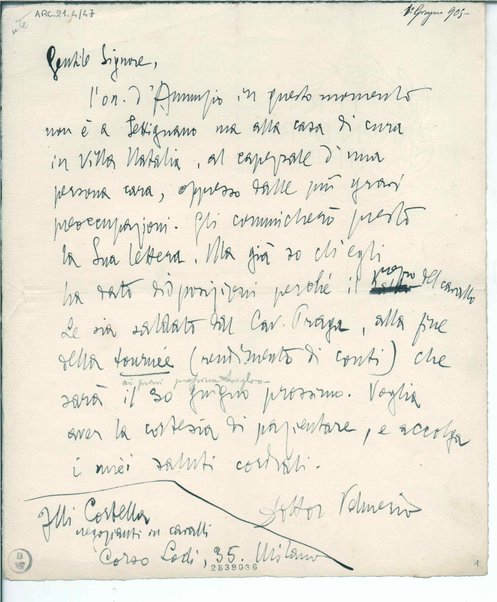 ARC.21.4/47
Giugno 905-
Gentile Signore,
l'on. d'Annunzio in questo momento
non è a Settignano ma alla casa di cura
in Villa Natalia, al capezzale d'una
persona cara, oppresso dalle più gravi
preoccupazioni. Gli comunicherò presto
la Sua lettera. Ma già so ch'egli
ha dato disposizioni perchè il prezzo del cavallo
Le sia saldato dal Cav. Praga, alla fine
della tournée (rendimento di conti) che
ai primi prossimo luglio
sarà il 30 giugno prossimo. Voglia
aver la cortesia di pazientare, e accolga
i miei saluti cordiali.
Dottor
Flli Costella
negozianti in cavalli
Corso Lodi, 35. Milano
2839036
1